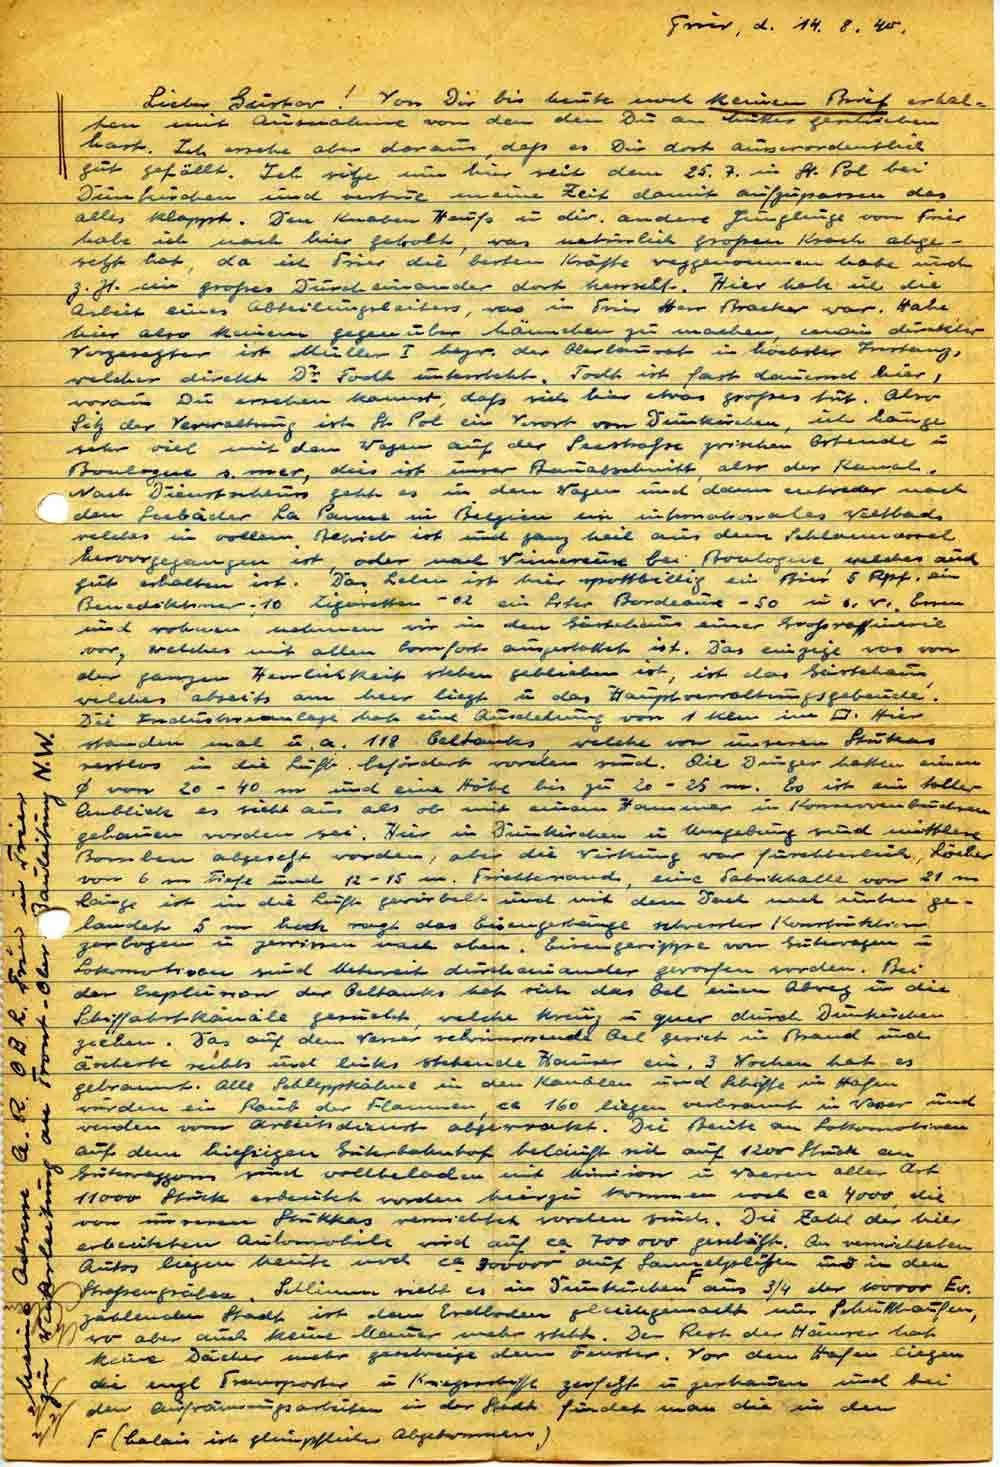 Trier, d. 14. 8. 40.
Lieber Gustav! Von Dir bis heute noch keinen Brief erhal-
ten mit Ausnahme von den den Du an geschrieben
hast. Ich ersehe aber daraus, daß es Dir dort ausserordentlich
gut gefällt. Ich sitze nun hier seit dem 25. 7. in St. Pol bei
Dünkirchen und vertue meine Zeit damit aufzupassen das
alles klappt. Den Knaben Haufs u div. andere Jünglinge von Trier
habe ich nach hier geholt, was natürlich großen Krach abge-
setzt hat, da ich Trier die besten Kräfte weggenommen habe und
z. Zt. ein großes Durcheinander dort herrscht. Hier hab ich die
Arbeit eines Abteilungsleiters, was in Trier Herr Bracker war. Habe
hier also keinem gegenüber Männchen zu machen, mein direkter
Vorgesetzter ist Müller I bezw. der Oberbaurat in höchster Instanz,
welcher direkt Dr. Todt untersteht. Todt ist fast dauernd hier,
woran Du ersehen kannst, daß sich hier etwas großes tut. Also
Sitz der Verwaltung ist St. Pol ein Vorort von Dünkirchen, ich hänge
sehr viel mit dem Wagen auf der Seestraße zwischen Ostende u
Boulogne s. mer, dies ist unser Bauabschnitt, also der Kanal.
Nach Dienstschluss geht es in den Wagen und dann entweder nach
den Seebäder La Panne in Belgien ein internationales Weltbad
welches in vollem Betrieb ist und ganz heil aus dem Schlamassel
hervorgegangen ist, oder nach Vimereux bei Boulogne, welches auch
gut erhalten ist. Das Leben ist hier spottbillig ein Bier 5 Rpf. ein
Benediktiner -.10 Zigaretten -.02 ein Liter Bordeaux -.50 u.s.w. Essen
und wohnen nehmen wir in den Gästehaus einer Großraffinerie
vor, welches mit allen Comfort ausgestattet ist. Das einzige was von
der ganzen Herrlichkeit stehen geblieben ist, ist das Gästehaus,
welches abseits am Meer liegt u das Hauptverwaltungsgebäude.
Die Industrieanlage hat eine Ausdehnung von 1 Klm im □. Hier
standen mal u. a. 118 Oeltanks, welche von unseren Stukas
restlos in die Luft befördert worden sind. Die Dinger hatten einen
Ø von 20 - 40 m und eine Höhe bis zu 20 - 25 m. Es ist ein toller
Anblick es sieht aus als ob mit einem Hammer in Konservenbüchsen
gehauen worden sei. Hier in Dünkirchen u Umgebung sind mittlere
Bomben abgesetzt worden, aber die Wirkung war fürchterlich, Löcher
von 6 m Tiefe und 12 - 15 m. Trichterrand, eine Fabrikhalle von 21 m
Länge ist in die Luft gewirbelt und mit dem Dach nach unten ge-
landet 5 m hoch ragt das Eisengestänge schwerster Konstruktion
zerbogen u zerrissen nach oben. Eisengerippe von Güterwagen u
Lokomotiven sind durcheinander geworfen worden. Bei
der Explusion der Oeltanks hat sich das Oel einen Abweg in die
Schiffahrtskanäle gesucht, welche kreuz u quer durch Dünkirchen
ziehen. Das auf dem Wasser schwimmende Oel geriet in Brand und
äscherte rechts und links stehende Häuser ein. 3 Wochen hat es
gebrannt. Alle Schleppkähne in den Kanälen und Schiffe im Hafen
wurden ein Raub der Flammen, ca 160 liegen verbrannt im Wasser und
werden vom Arbeitsdienst abgewrakt. Die Beute an Lokomotiven
auf dem hiesigen Güterbahnhof beläuft sich auf 1200 Stück an
Güterwaggons sind vollbeladen mit Munition u Waren aller Art
11000 Stück erbeutet worden hierzu kommen noch ca 4000 die
von unseren Stukkas vernichtet worden sind. Die Zahl der hier
erbeuteten Automobile wird auf ca 700 000 geschätzt. An vernichteten
Autos liegen heute noch ca 300000 auf Sammelplätzen und in den
Straßengräben. Schlimm sieht es in Dünkirchen F aus 3/4 der 100000 Ew.
zählenden Stadt ist dem Erdboden gleichgemacht nur Schutthaufen,
wo aber auch keine Mauer mehr steht. Der Rest der Häuser hat
keine Dächer mehr geschweige denn Fenster. Vor dem Hafen liegen
die engl Transporter u Kriegsschiffe zerfetzt u zerhauen und bei
den Aufräumungsarbeiten in der Stadt findet man die in den
F (Calais ist glimpflicher Abgekommen)
Meine Adresse A. R. O B L. Trier in Trier
zur Weiterleitung an Front-Ober Bauleitung N.W.